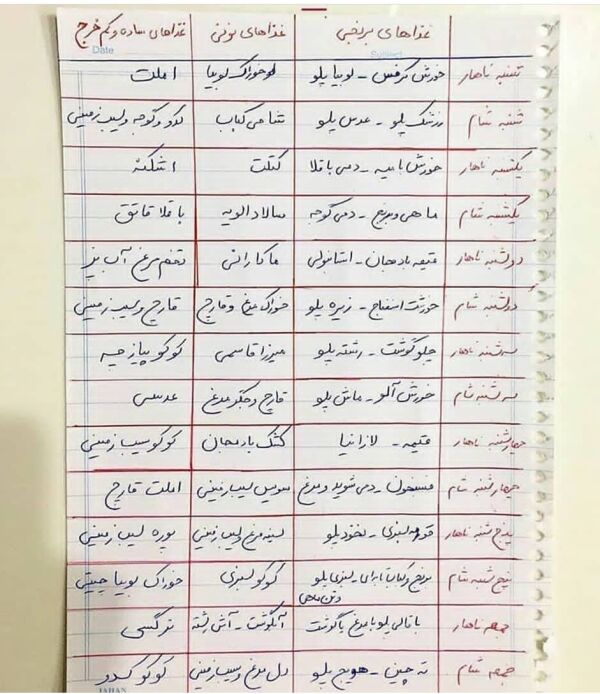 غذاهای برنجی غذاهای نونی غذاهای ساده و کم خرج
Date
شنبه ناهار خورش کرفس - لوبیا پلو خوراک لوبیا املت
شنبه شام زرشک پلو - عدس پلو شامی کباب کدو و گوجه و سیب زمینی
یکشنبه ناهار خورش بامیه - دمی باقلا کتلت اشکنه
یکشنبه شام ماهی و برنج - دمی گوجه سالاد الویه باقلا قاتق
دوشنبه ناهار قیمه بادمجان - استانبولی ماکارانی تخم مرغ آب پز
دوشنبه شام خورشت اسفناج - زیره پلو خوراک مرغ و قارچ قارچ و سیب زمینی
سه شنبه ناهار چلو گوشت - رشته پلو میرزا قاسمی کوکو پیازچه
سه شنبه شام خورش آلو - ماش پلو قارچ و جگر مرغ عدسی
چهارشنبه ناهار قیمه - لازانیا کشک بادمجان کوکو سیب زمینی
چهارشنبه شام فسنجون - دمی شوید و مرغ سوسیس سیب زمینی املت قارچ
پنج شنبه ناهار قورمه سبزی - نخود پلو سینه مرغ سیب زمینی پوره سیب زمینی
پنج شنبه شام برنج و کباب تابه ای - سبزی پلو کوکو سبزی خوراک لوبیا چیتی
جمعه ناهار باقالی پلو با مرغ یا گوشت آبگوشت - آش رشته نرگسی
جمعه شام ته چین - هویج پلو دل مرغ و سیب زمینی کوکو کدو
JAHAN